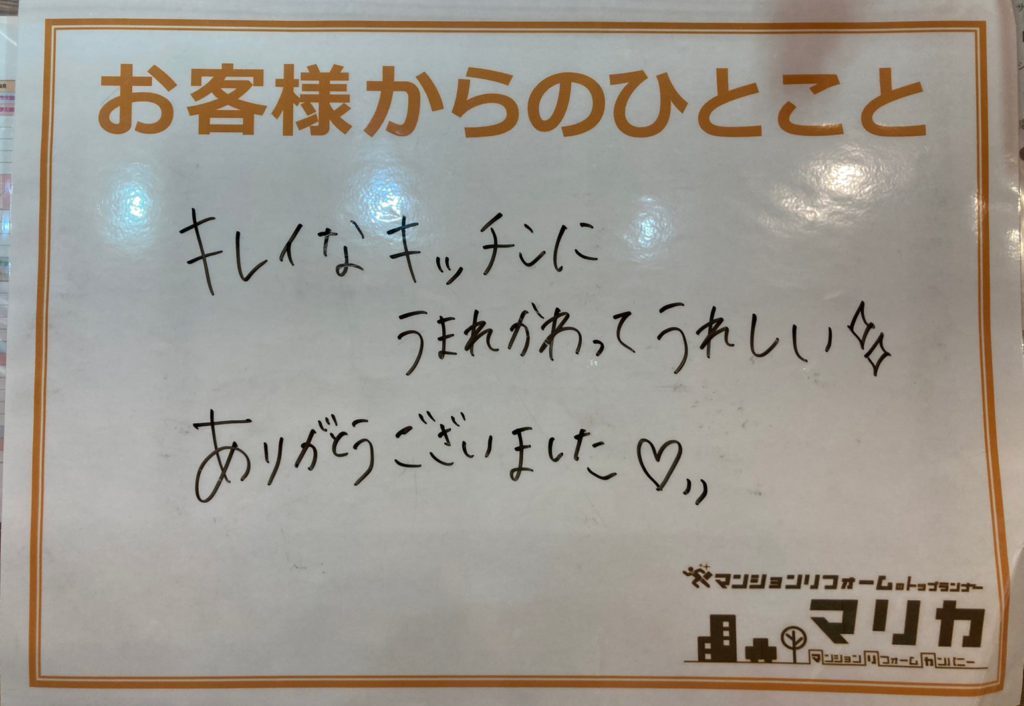 お客様からのひとこと
キレイなキッチンに
うまれかわってうれしい
ありがとうございました♡
マンションリフォームのトップランナー
マリカ
マンションリフォームカンパニー